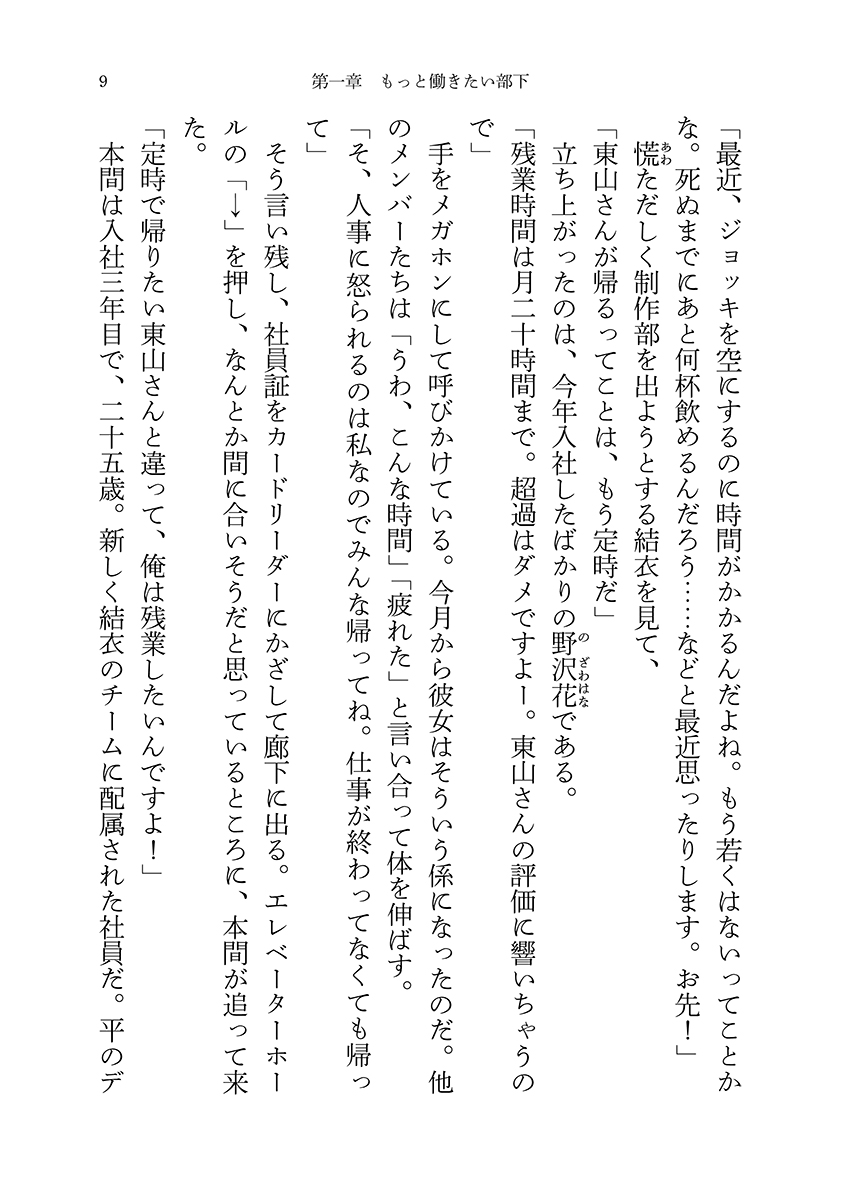 9
第一章　もっと働きたい部下
「最近、ジョッキを空にするのに時間がかかるんだよね。もう若くはないってことか
な。死ぬまでにあと何杯飲めるんだろう……などと最近思ったりします。お先！」
　慌ただしく制作部を出ようとする結衣を見て、
「東山さんが帰るってことは、もう定時だ」
　立ち上がったのは、今年入社したばかりの野沢花である。
「残業時間は月二十時間まで。超過はダメですよー。東山さんの評価に響いちゃうの
で」
　手をメガホンにして呼びかけている。今月から彼女はそういう係になったのだ。他
のメンバーたちは「うわ、こんな時間」「疲れた」と言い合って体を伸ばす。
「そ、人事に怒られるのは私なのでみんな帰ってね。仕事が終わってなくても帰っ
て」
　そう言い残し、社員証をカードリーダーにかざして廊下に出る。エレベーターホー
ルの「↓」を押し、なんとか間に合いそうだと思っているところに、本間が追って来
た。
「定時で帰りたい東山さんと違って、俺は残業したいんですよ！」
　本間は入社三年目で、二十五歳。新しく結衣のチームに配属された社員だ。平のデ